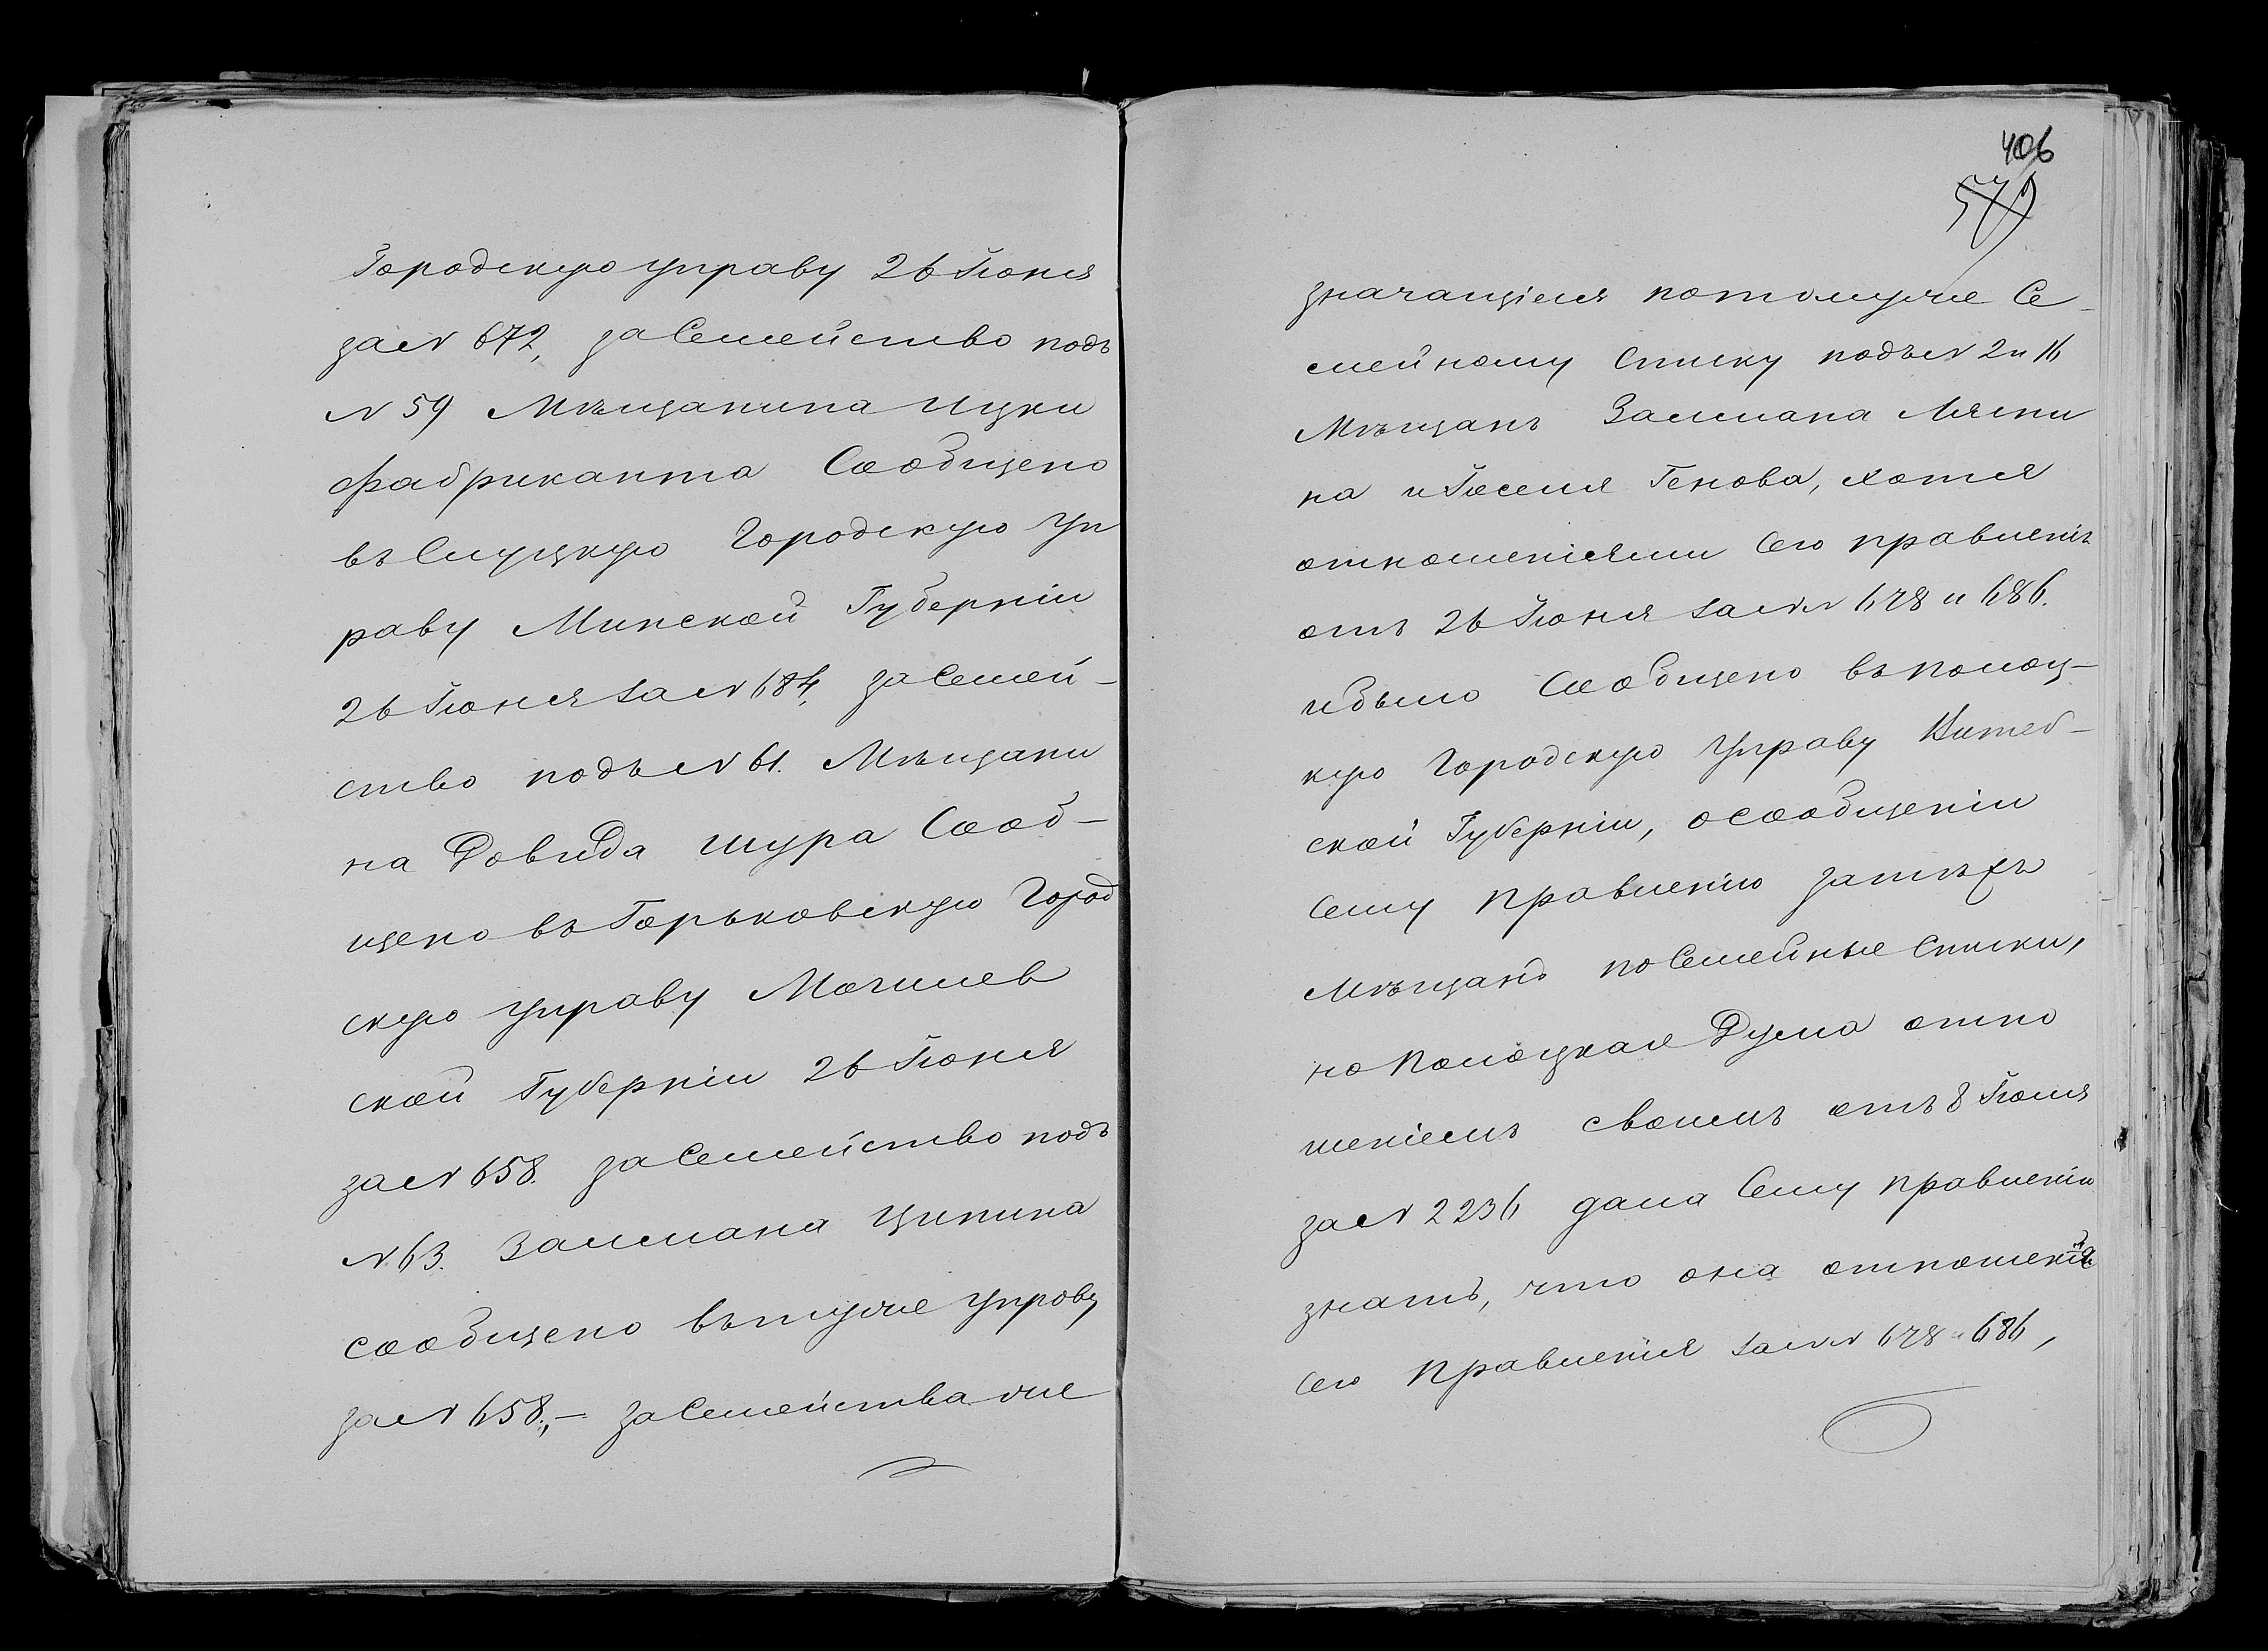 Городскую управу 26 Іюня
за № 672, за Семейство подъ
№ 59 Мѣщанина Ицки
Фабриканта Сообщено
въ Слуцкую Городскую Уп
раву Минской Губерніи
26 Іюня за № 684, за Семей-
ство подъ № 61. Мѣщани
на Довида Шура Сооб-
щено въ Горьковскую Город
скую управу Могилев
ской Губерніи 26 Іюня
за № 658. за Семейство подъ
№ 63. Залмана Ципина
сообщено въ туже Управу
за № 658.,- за Семейства же
406
579
значащіеся по томуже Се-
мейному Списку подъ № 2 и 16
Мѣщанъ Залмана Ляпи
на и Іоселя Генова, хотя
отношеніями Сего правленія
отъ 26 Іюня за №№ 678 и 686.
и было Сообщено въ Полоц-
кую Городскую Управу Витеб-
ской Губерніи, о сообщеніи
Сему Правленію за тѣхъ
Мѣщанъ посемейные Списки,
но Полоцкая Дума отно
шеніемъ своимъ отъ 8 Іюля
за № 2236 дала Сему правленію
знать, что она отношенія
Сего Правленія за №№ 678 и 686,